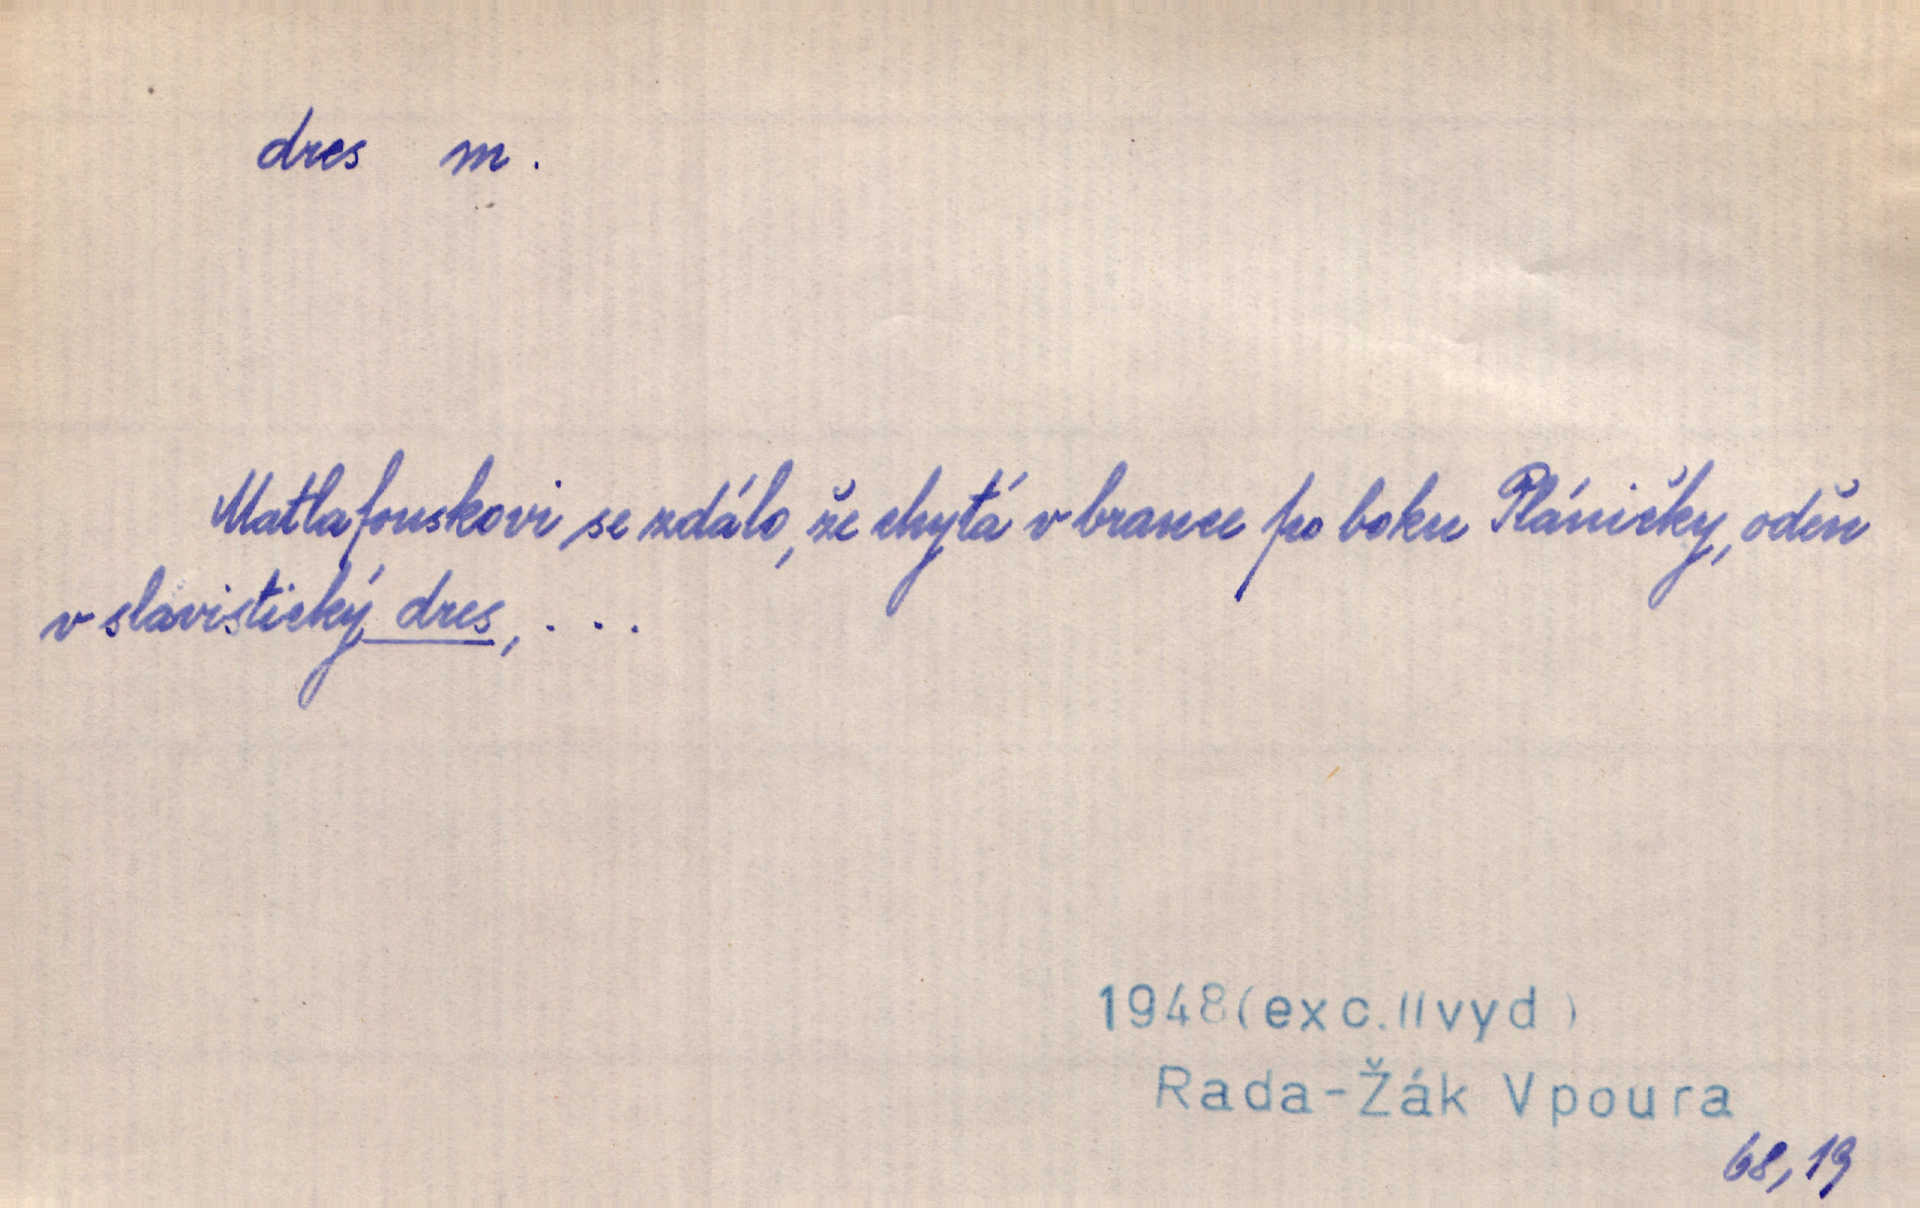 dres m.
Matlafouskovi se zdálo, že chytá v brance po boku Pláničky, oděn
v slavistický dres, . . .
1948(exc.IIvyd)
Rada-Žák Vpoura
68,19